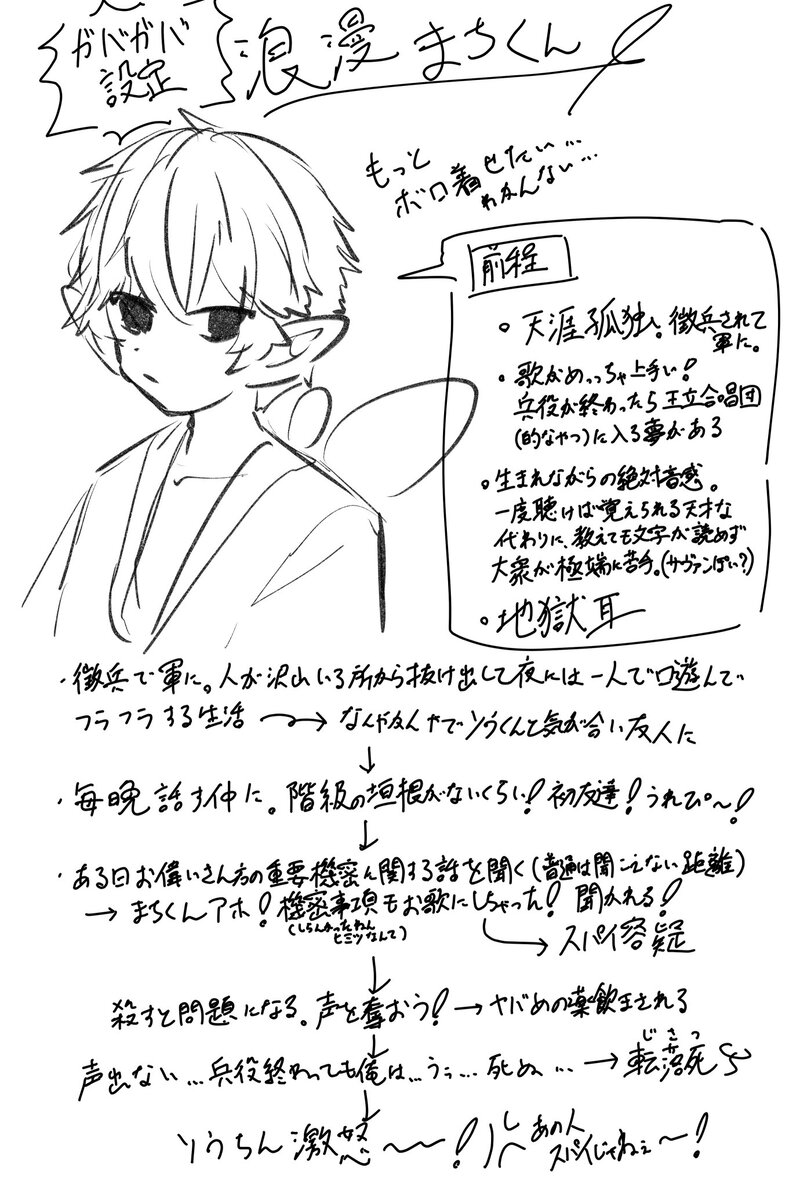 ガバガバ
設定
浪漫 まちくん
もっと
ボロ着せたい…
わかんない…
前程
。天涯孤独。徴兵されて
軍に。
・歌がめっちゃ上手い!
兵役が終わったら王立合唱団
(的なやつ)に入る夢がある
。生まれながらの絶対音感。
一度聴けば覚えられる天才な
代わりに、教えても文字が読めず
大衆が極端に苦手。(サヴァンぽい?)
・地獄耳
・徴兵で軍に。人が沢山いる所から抜け出して夜には一人で口遊んで
フラフラする生活 → なんやかんやでソウくんと気が合い友人に
↓
・毎晩話す仲に。階級の垣根がないくらい!初友達!うれぴ〜!
↓
・ある日お偉いさん方の重要機密に関する話を聞く(普通は聞こえない距離)
→ まちくんアホ!機密事項もお歌にしちゃった!聞かれる!
(しらんかったねん
ヒミツなんて)
→ スパイ容疑
↓
殺すと問題になる。声を奪おう!→ヤバめの薬飲まされる
↓
声出ない…兵役終わっても俺は…うぅ…死ぬ…→転落死
じさつ
↓
ソウちん激怒〜〜!
あの人
スパイじゃねぇ〜!